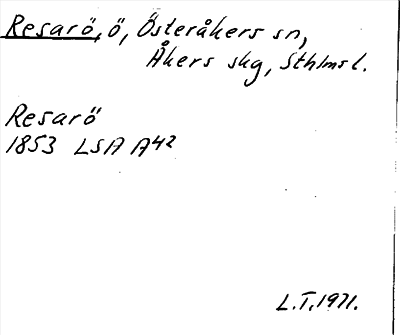 Resarö, ö, Österåkers sn,
Åkers skg, Sthlms l.
Resarö
1853 LSA A42
L.T. 1971.